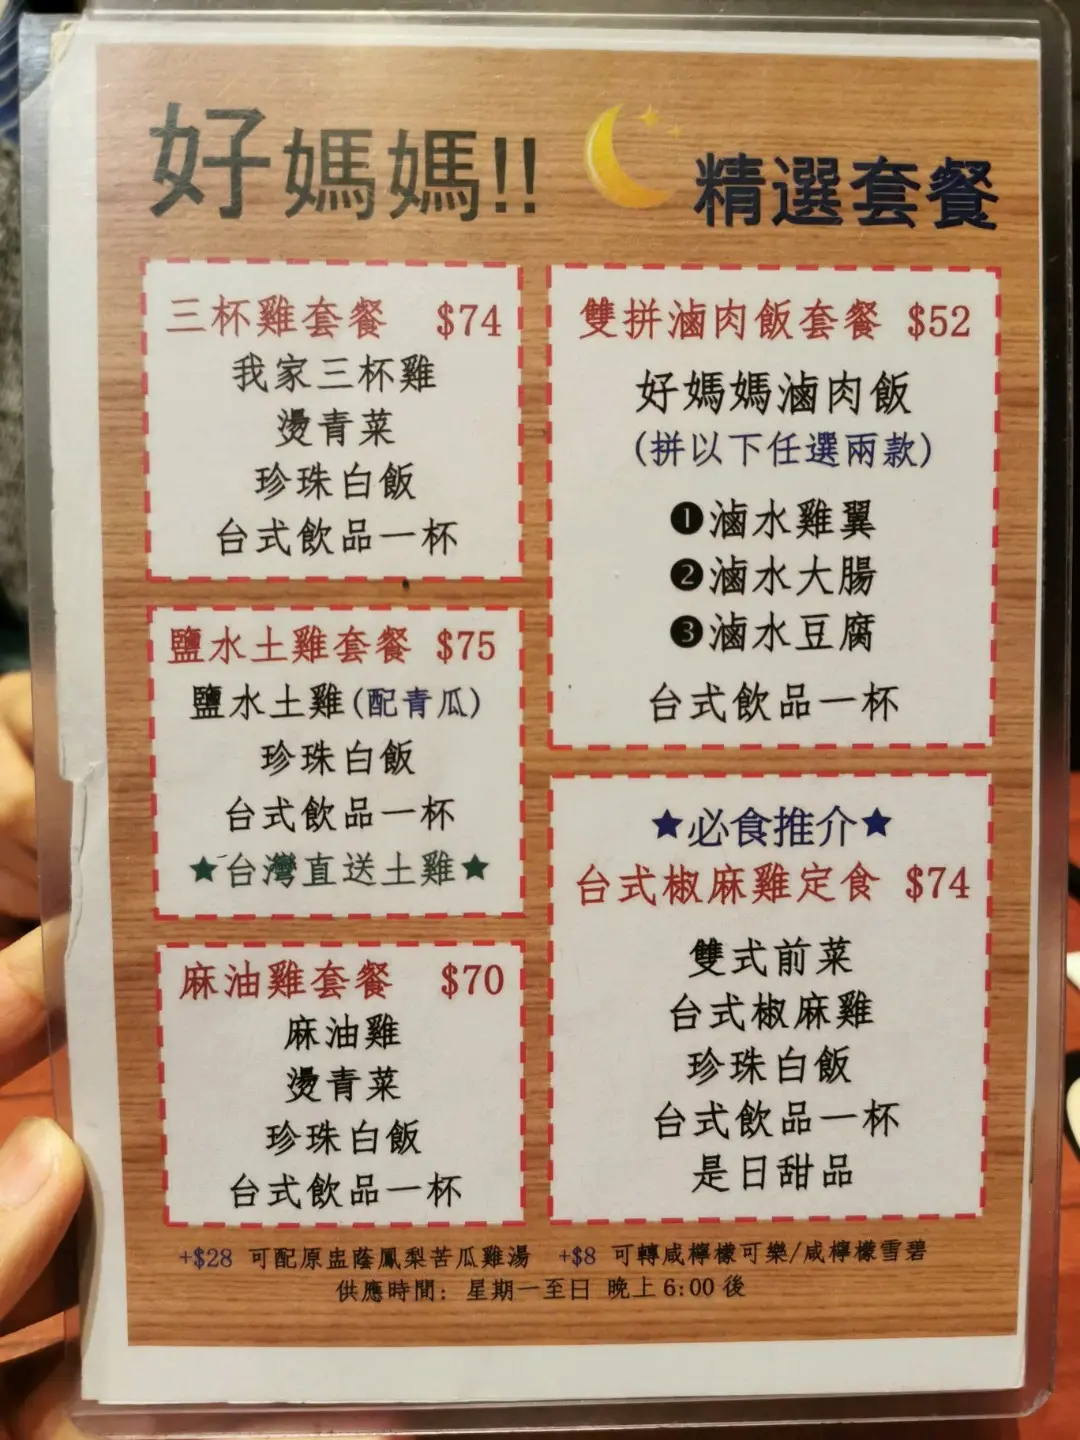 好媽媽!!
精選套餐
三杯雞套餐 $74
我家三杯雞
燙青菜
珍珠白飯
台式飲品一杯
鹽水土雞套餐 $75
鹽水土雞(配青瓜)
珍珠白飯
台式飲品一杯
★台灣直送土雞★
麻油雞套餐 $70
麻油雞
燙青菜
珍珠白飯
台式飲品一杯
雙拼滷肉飯套餐 $52
好媽媽滷肉飯
(拼以下任選兩款)
❶滷水雞翼
❷滷水大腸
❸滷水豆腐
台式飲品一杯
★必食推介★
台式椒麻雞定食 $74
雙式前菜
台式椒麻雞
珍珠白飯
台式飲品一杯
是日甜品
+$28 可配原盅蔭鳳梨苦瓜雞湯 +$8 可轉咸檸檬可樂/咸檸檬雪碧
供應時間: 星期一至日 晚上 6:00 後